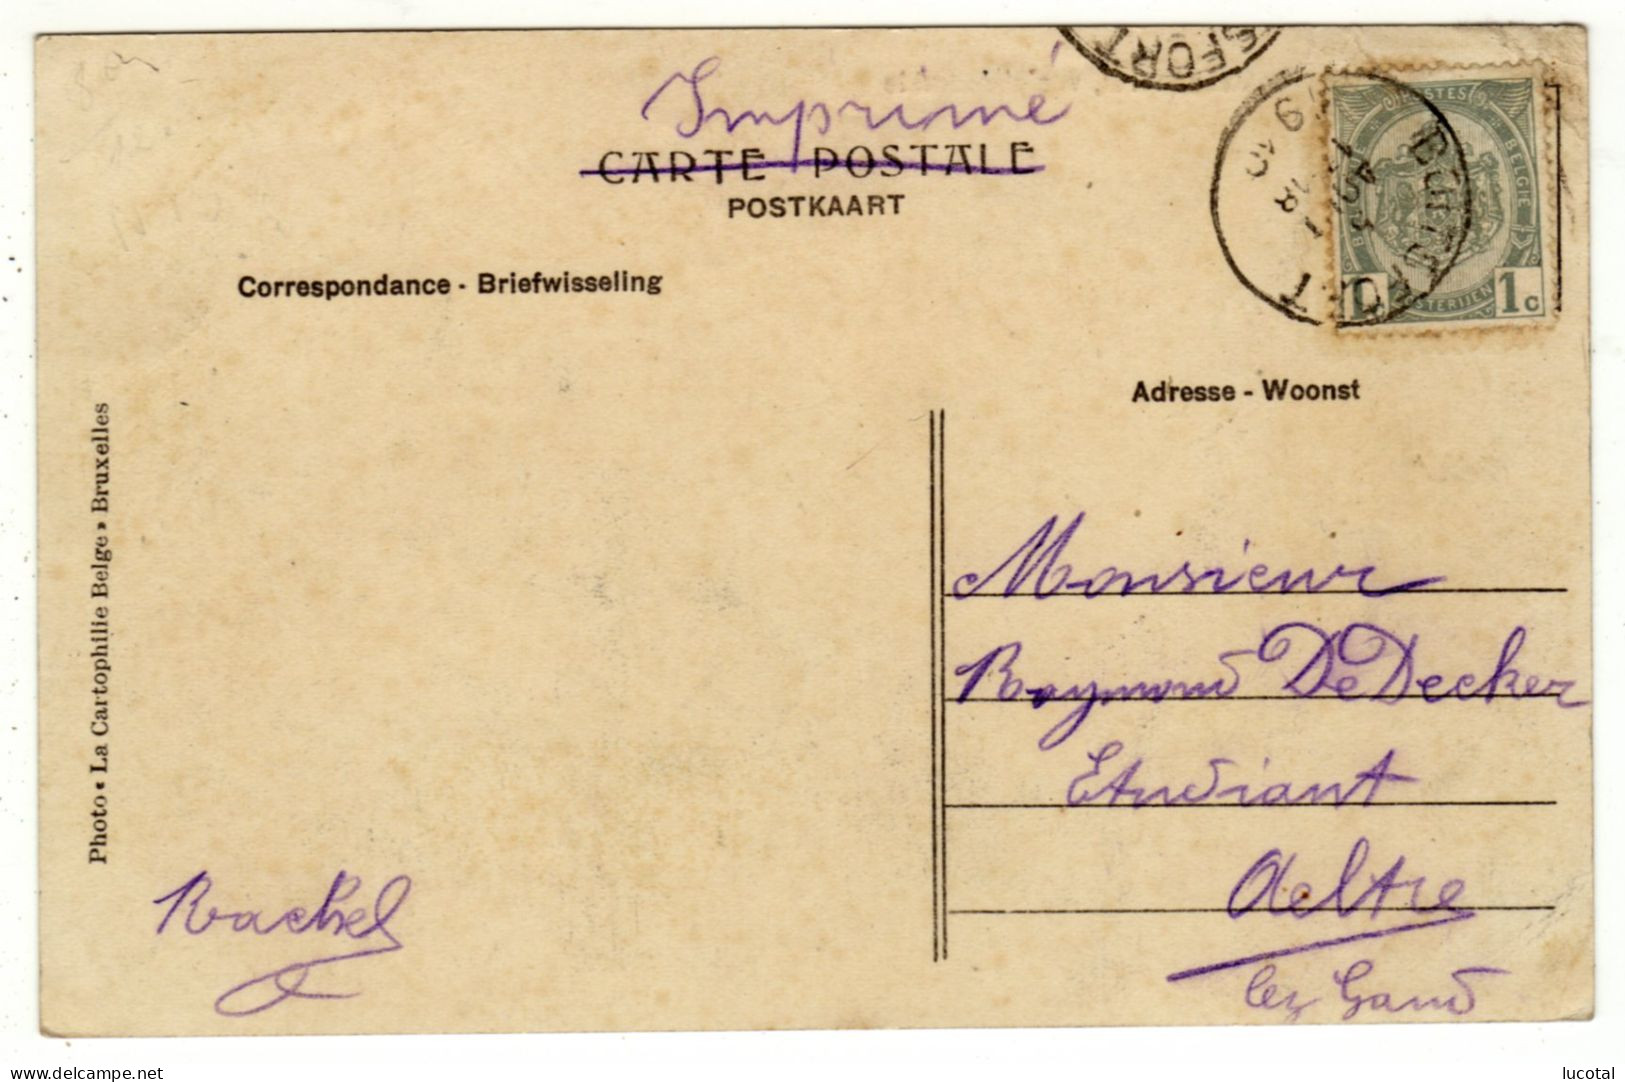 Imprimé
CARTE POSTALE
POSTKAART
Correspondance - Briefwisseling
Adresse - Woonst
Photo « La Cartophilie Belge » Bruxelles
Monsieur
Raymond De Decker
Etudiant
Aeltre
lez Gand
Rachel
POSTES
BELGIE
1c
delcampe.net
lucotal